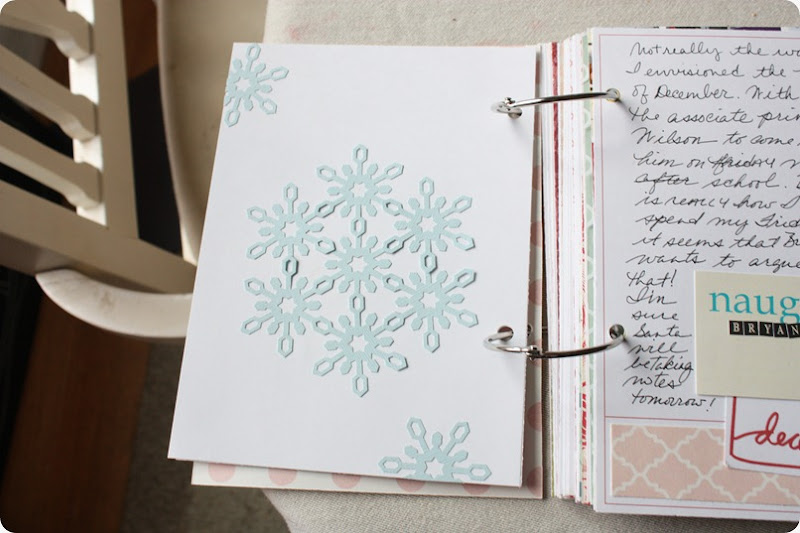 Not really the wa
I envisioned the
of December. With
the associate prin
Wilson to come
him on friday
after school.
is really how I
spend my Frid
it seems that B
wants to argue
that!
I'm
sure
Santa
will
be taking
notes
tomorrow!
naug
BRYAN
dec